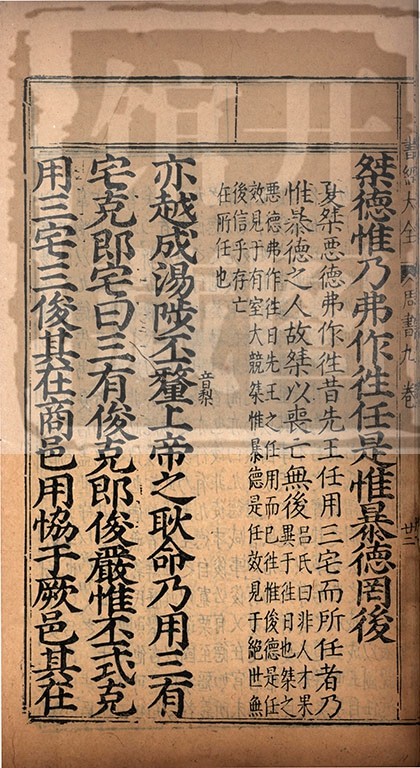 書經大全 周書九卷
桀德惟乃弗作徃任是惟暴德罔後
夏桀惡德弗作徃昔先王任用三宅而所任者乃
惟暴德之人故桀以喪亡無後呂氏曰非人才果
異于徃日也桀之
惡德弗作徃日先王之任用而已徃惟俊德是任
效見于有室大競桀惟暴德是任效見于絕世無
後信乎存亡
在所任也
亦越成湯陟丕釐上帝之耿命乃用三有
音棃
宅克即宅曰三有俊克即俊嚴惟丕式克
用三宅三俊其在商邑用恊于厥邑其在